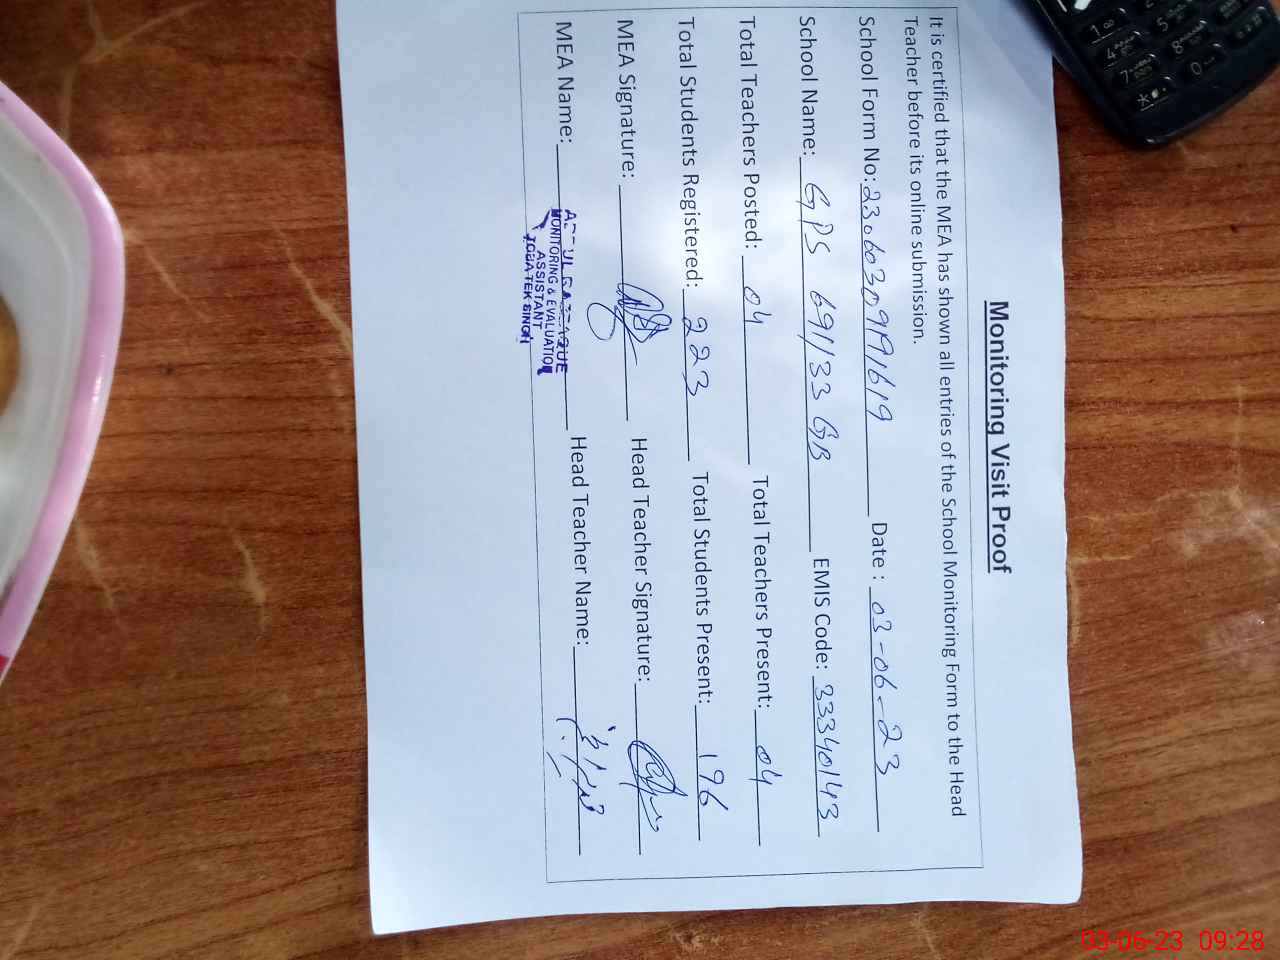 Monitoring Visit Proof
It is certified that the MEA has shown all entries of the School Monitoring Form to the Head
Teacher before its online submission.
School Form No: 23060309191619 Date : 03-06-23
School Name: GPS 691/33 GB EMIS Code: 33340143
Total Teachers Posted: 04 Total Teachers Present: 04
Total Students Registered: 223 Total Students Present: 196
MEA Signature: Head Teacher Signature:
MEA Name: Head Teacher Name:
MONITORING & EVALUATION
ASSISTANT
TOBA TEK SINGH
03-06-23 09:28